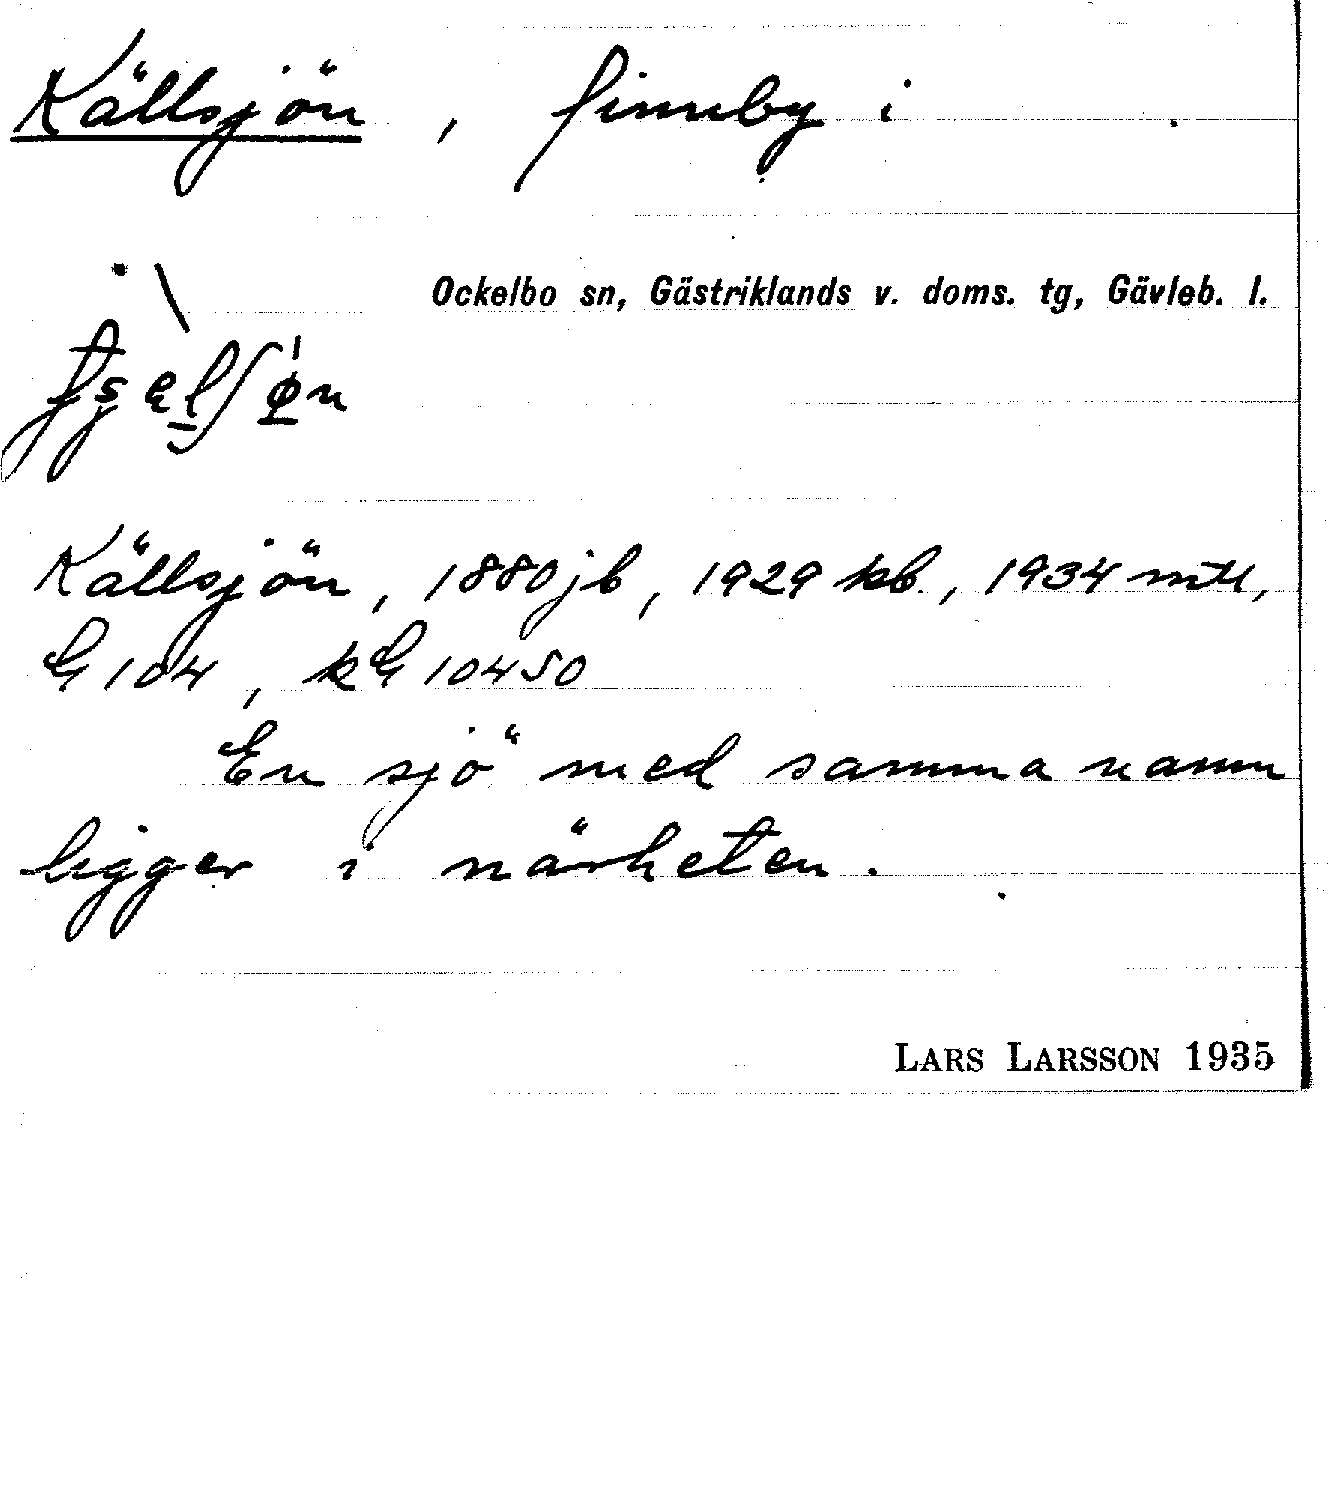 Källsjön, finnby i
Ockelbo sn, Gästriklands v. doms. tg, Gävleb. l.
Källsjön, 1880 jb, 1929 kb., 1934 mtl,
G 104, kG 10450
En sjö med samma namn
ligger i närheten.
LARS LARSSON 1935